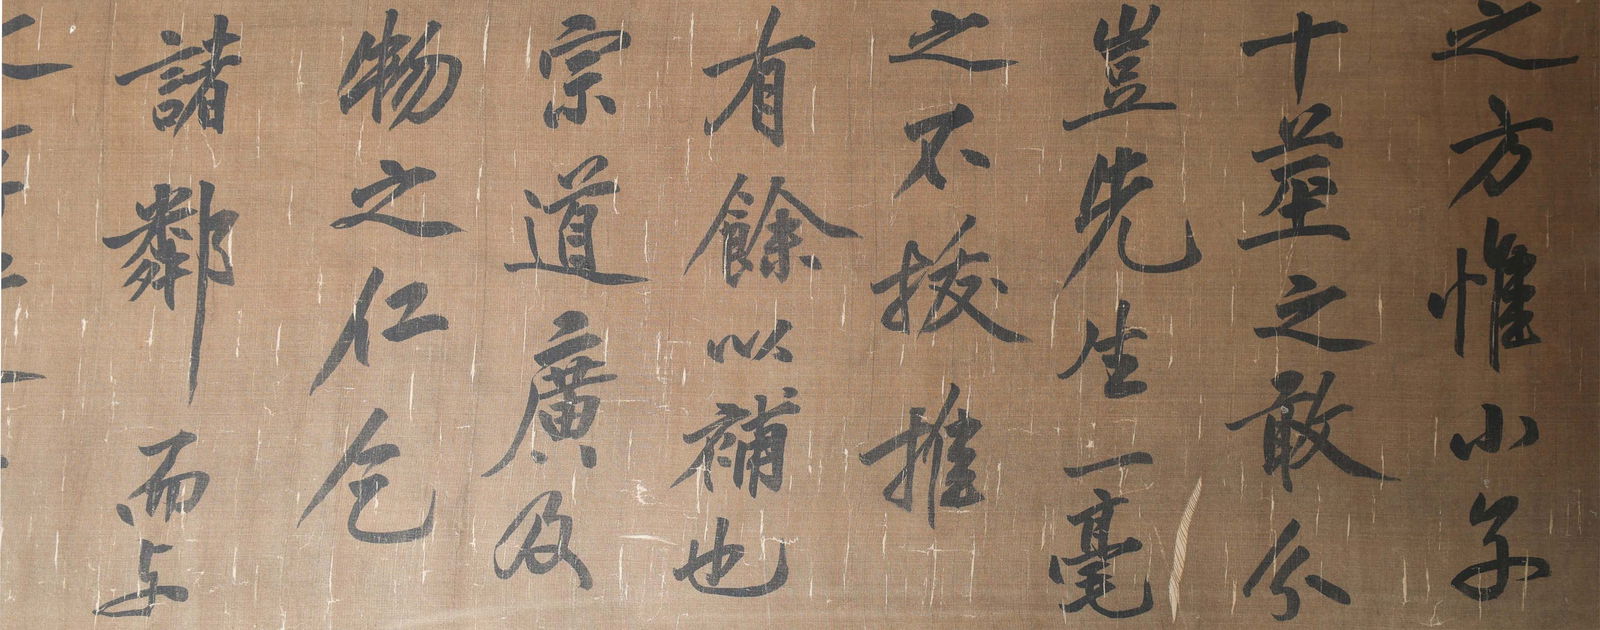 之方惟小子
十莖之敢分
豈先生一毫
之不拔推
有餘以補也
宗道廣及
物之仁乞
諸鄰而与